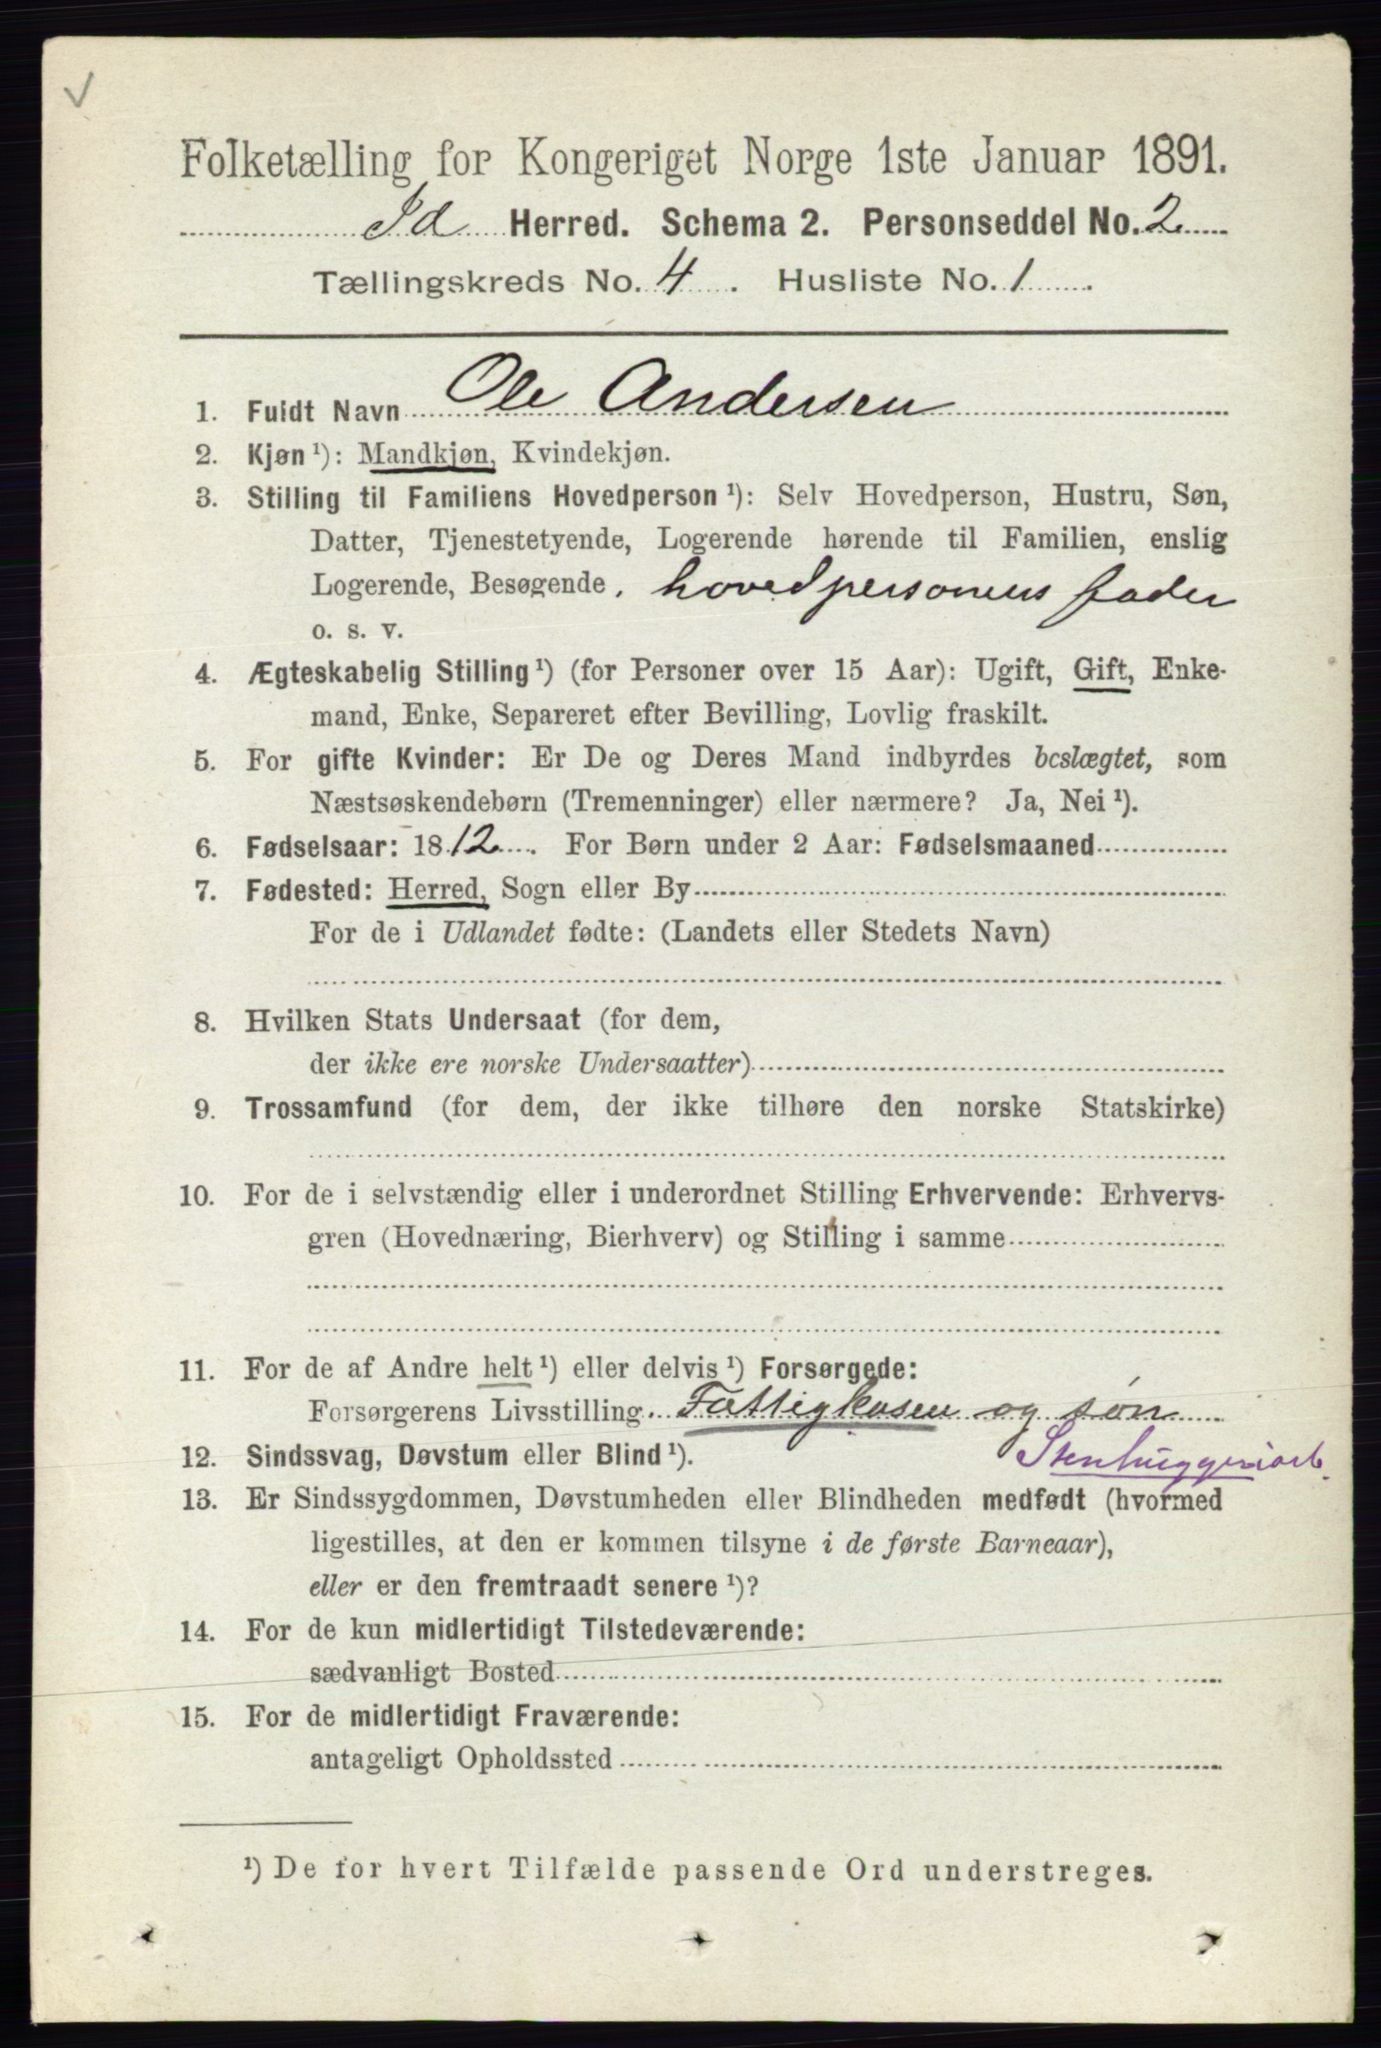 Folketælling for Kongeriget Norge 1ste Januar 1891.
Id Herred. Schema 2. Personseddel No. 2
Tællingskreds No. 4. Husliste No. 1.
1. Fuldt Navn Ole Andersen
2. Kjøn ¹): Mandkjøn, Kvindekjøn.
3. Stilling til Familiens Hovedperson ¹): Selv Hovedperson, Hustru, Søn,
Datter, Tjenestetyende, Logerende hørende til Familien, enslig
Logerende, Besøgende. hovedpersonens fader
o. s. v.
4. Ægteskabelig Stilling ¹) (for Personer over 15 Aar): Ugift, Gift, Enke-
mand, Enke, Separeret efter Bevilling, Lovlig fraskilt.
5. For gifte Kvinder: Er De og Deres Mand indbyrdes beslægtet, som
Næstsøskendebørn (Tremenninger) eller nærmere? Ja, Nei ¹).
6. Fødselsaar: 1812. For Børn under 2 Aar: Fødselsmaaned
7. Fødested: Herred, Sogn eller By
For de i Udlandet fødte: (Landets eller Stedets Navn)
8. Hvilken Stats Undersaat (for dem,
der ikke ere norske Undersaatter)
9. Trossamfund (for dem, der ikke tilhøre den norske Statskirke)
10. For de i selvstændig eller i underordnet Stilling Erhvervende: Erhvervs-
gren (Hovednæring, Bierhverv) og Stilling i samme
11. For de af Andre helt ¹) eller delvis ¹) Forsørgede:
Forsørgerens Livsstilling. Fattigkasen og søn
12. Sindssvag, Døvstum eller Blind ¹). Stenhuggeriarb.
13. Er Sindssygdommen, Døvstumheden eller Blindheden medfødt (hvormed
ligestilles, at den er kommen tilsyne i de første Barneaar),
eller er den fremtraadt senere ¹)?
14. For de kun midlertidigt Tilstedeværende:
sædvanligt Bosted
15. For de midlertidigt Fraværende:
antageligt Opholdssted
¹) De for hvert Tilfælde passende Ord understreges.